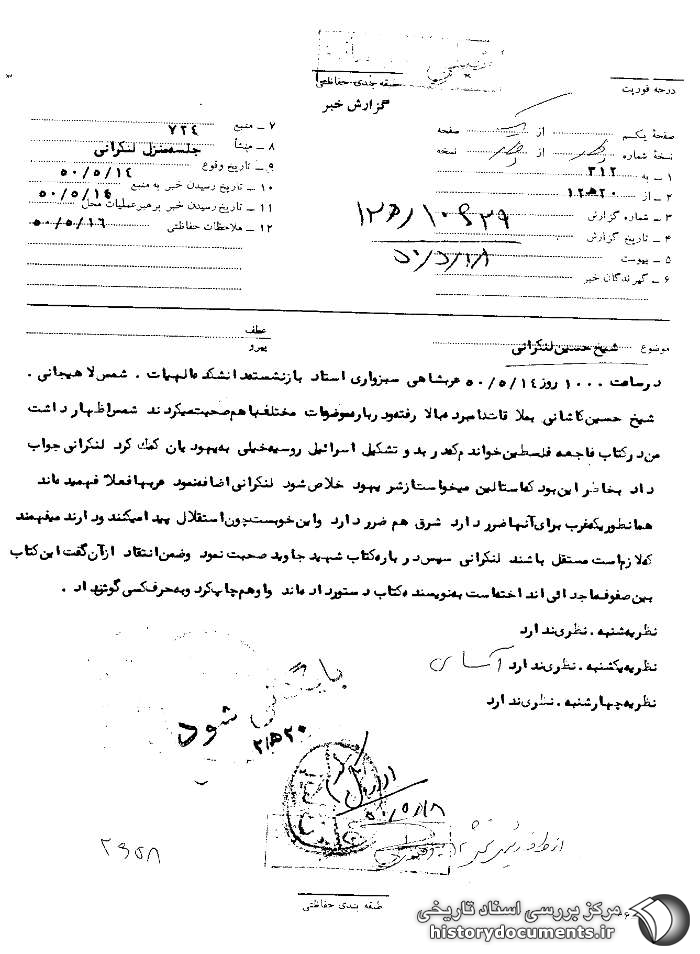 طبقه بندی حفاظتی
گزارش خبر
درجه فوریت
صفحهٔ یکم از صفحه
نسخهٔ شماره از نسخه
۱ ـ به ۳۱۲
۲ ـ از ۲۰ ه‍ ۱۲
۳ ـ شماره گزارش
۴ ـ تاریخ گزارش
۵ ـ پیوست
۶ ـ گیرندگان خبر
۵۰/۵/۱۸
۷ ـ منبع ۷۲۴
۸ ـ منشأ جلسه منزل لنکرانی
۹ ـ تاریخ وقوع ۵۰/۵/۱۴
۱۰ ـ تاریخ رسیدن خبر به منبع
۱۱ ـ تاریخ رسیدن خبر برهبر عملیات محل ۵۰/۵/۱۶
۱۲ ـ ملاحظات حفاظتی
موضوع شیخ حسین لنکرانی
عطف
پیرو
در ساعت ۱۰۰۰ روز ۵۰/۵/۱۴ عربشاهی سبزواری استاد بازنشسته دانشکده الهیات . شمس لاهیجانی .
شیخ حسین کاشانی بملاقات نامبرده بالا رفته و درباره موضوعات مختلف باهم صحبت میکردند شمس اظهار داشت
من در کتاب فاجعه فلسطین خواندم که در بدو تشکیل اسرائیل روسیه خیلی به یهودیان کمک کرد لنکرانی جواب
داد بخاطر این بود که استالین میخواست از شر یهود خلاص شود لنکرانی اضافه نمود عربها فعلا فهمیده اند
همانطوریکه غرب برای آنها ضرر دارد شرق هم ضرر دارد و این خوبست چون استقلال پیدا میکنند و دارند میفهمند
که لازم است مستقل باشند لنکرانی سپس درباره کتاب شهید جاوید صحبت نمود وضمن انتقاد از آن گفت این کتاب
بین صفوف ما جدائی انداخته است به نویسنده کتاب دستور داده اند واو هم چاپ کرد و به حرف کسی گوش نداد .
نظریه شنبه . نظری ندارد
نظریه یکشنبه . نظری ندارد
نظریه چهارشنبه . نظری ندارد
بایگانی شود
۲۰ ه‍ ۲
۵۰/۵/۱۸
طبقه بندی حفاظتی
مرکز بررسی اسناد تاریخی
historydocuments.ir